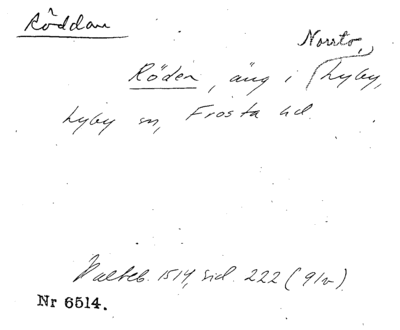 Röddan
Norrto,
Röden, äng i Lyby,
Lyby sn, Frosta hd.
1514, sid. 222 (9/
Nr 6514.